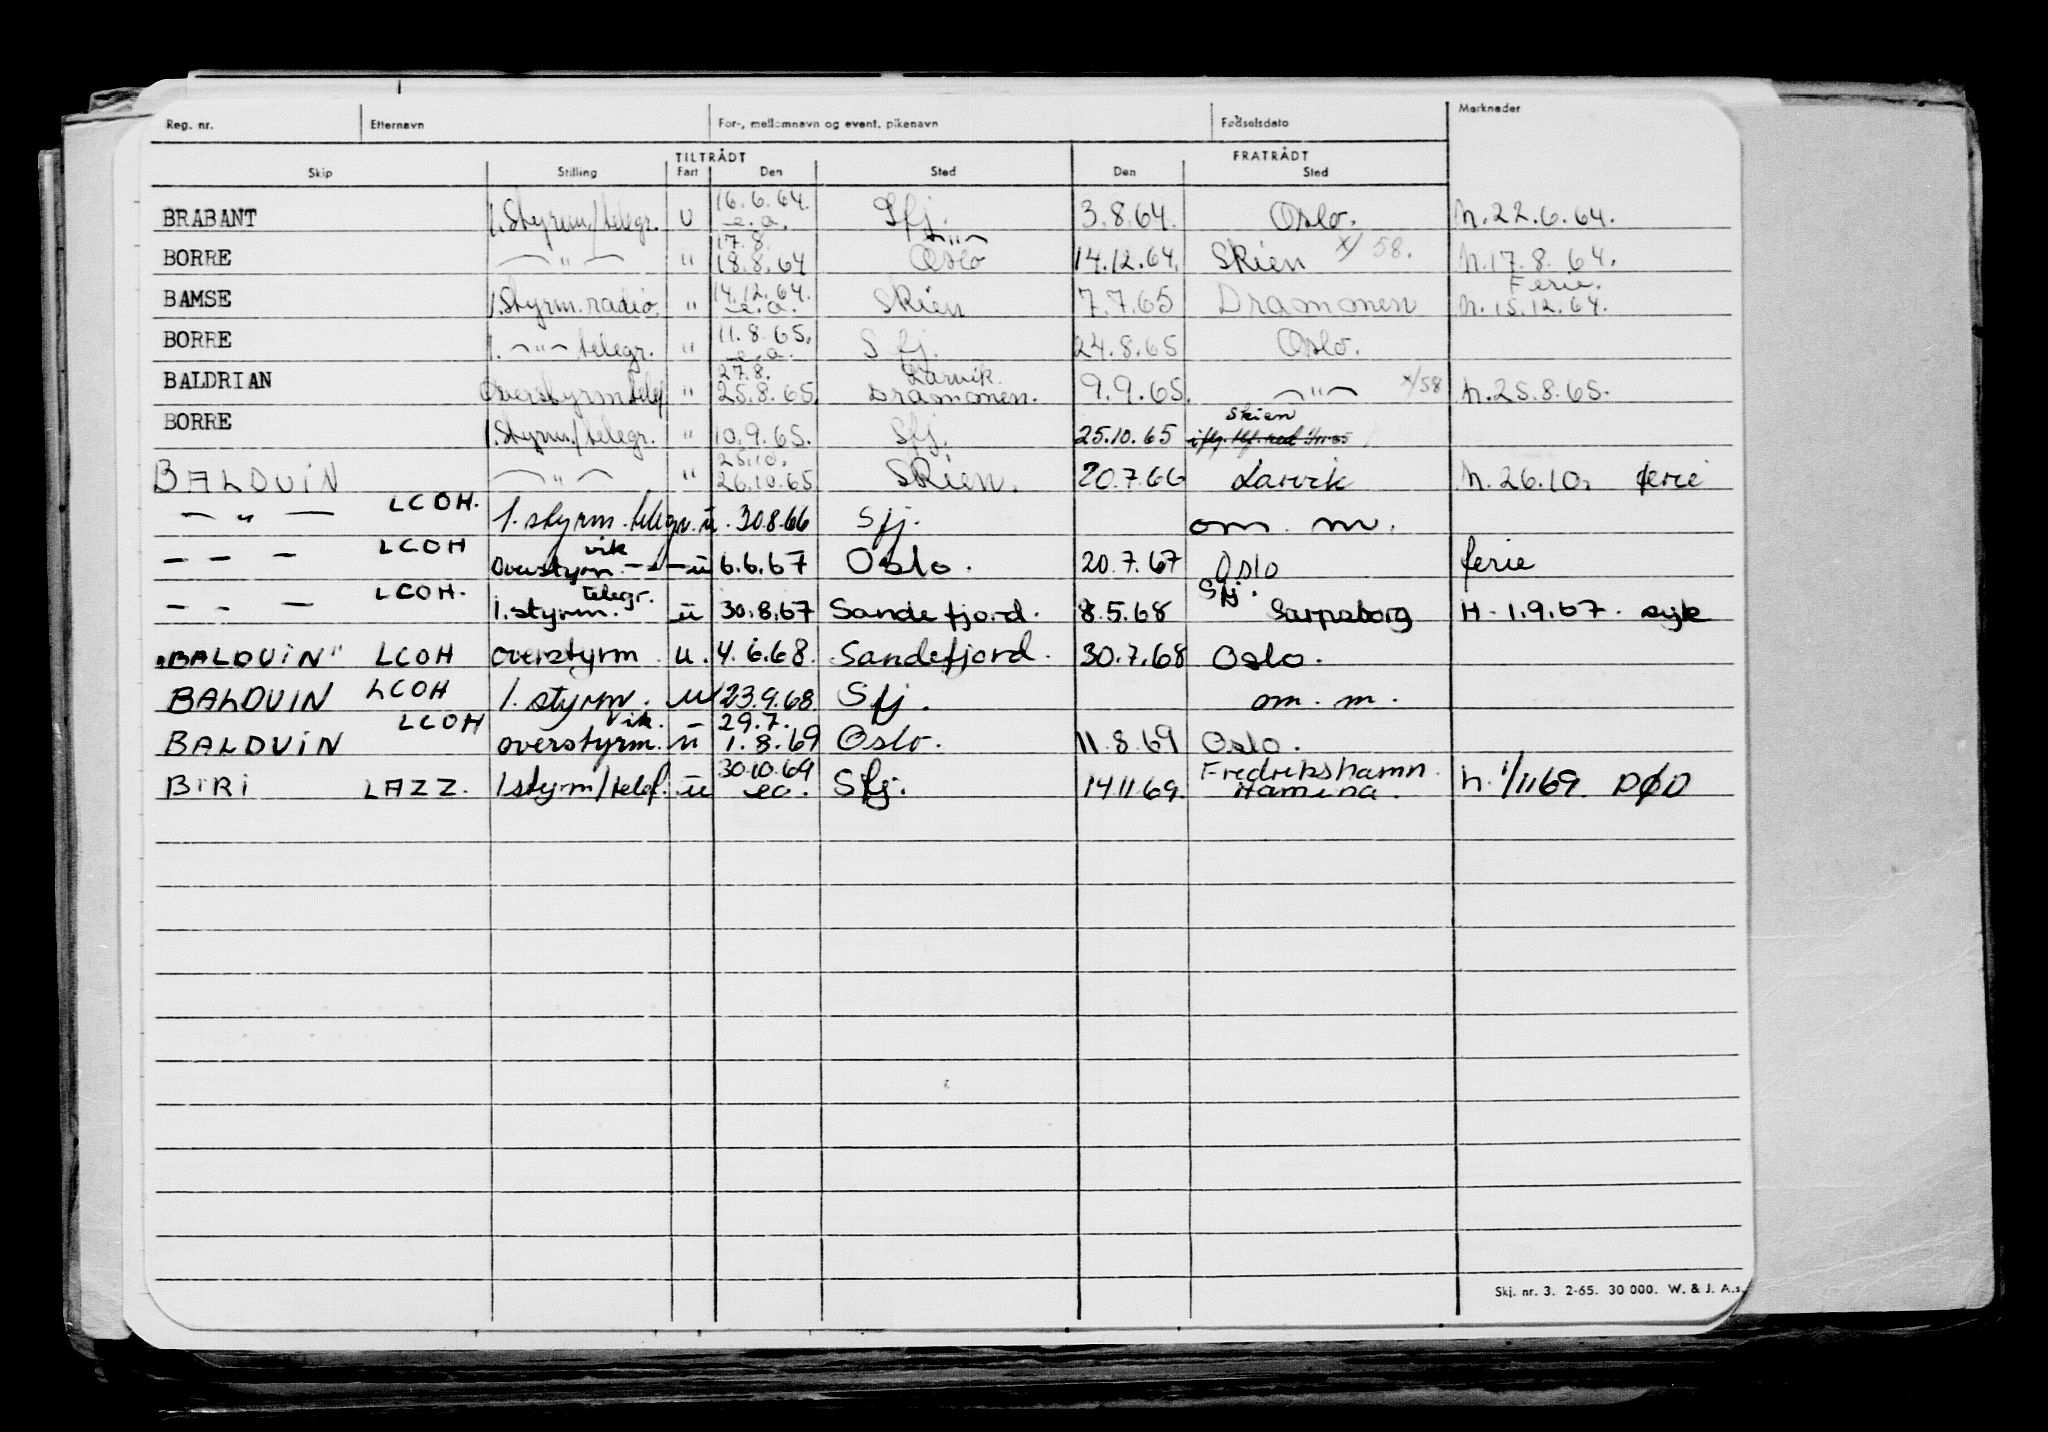 Reg. nr. Etternavn For-, mellomnavn og event. pikenavn Fødselsdato Merknader
TILTRÅDT FRATRÅDT
Skip Stilling Fart Den Sted Den Sted
16.6.64.
BRABANT 1. Styrm./telegr. U e.a. Sfj. 3.8.64. Oslo. h.22.6.64.
17.8. — " —
BORRE — " — " 18.8.64 Oslo 14.12.64. Skien x/ 58. h.17.8.64.
14.12.64. Ferie.
BAMSE 1. Styrm. radio. " e.a. Skien 7.7.65 Drammen h.15.12.64.
11.8.65.
BORRE 1. — " — telegr. " e.a. Sfj. 24.8.65 Oslo.
27.8. Larvik
BALDRIAN Overstyrm telegr " 25.8.65. Drammen. 9.9.65. — " — x/58 h.25.8.65.
Skien
BORRE 1. Styrm./telegr. " 10.9.65. Sfj. 25.10.65
25.10.
BALDUIN — " — " 26.10.65 Skien. 20.7.66 Larvik h.26.10. ferie
— " — LCOH. 1. styrm. telegr. u. 30.8.66 Sfj. om. m.
vik
— — — LCOH overstyrm. — " — u 6.6.67 Oslo. 20.7.67 Oslo ferie
telegr. Sfj.
— - — LCOH. 1. styrm. u 30.8.67 Sandefjord. 8.5.68 Sarpsborg H. 1.9.67. syk
"BALDUIN" LCOH overstyrm. u. 4.6.68. Sandefjord. 30.7.68 Oslo.
BALDUIN LCOH 1. styrm. u 23.9.68. Sfj. om. m.
LCOH vik. 29.7.
BALDUIN overstyrm. u 1.8.69 Oslo. 11.8.69 Oslo.
30.10.69 Fredrikshamn.
BIRI LAZZ. 1 styrm/telef. u ea. Sfj. 14.11.69. Hamina. h. 1/11 69. DØD
Skj. nr. 3. 2-65. 30 000. W. & J. A.s.